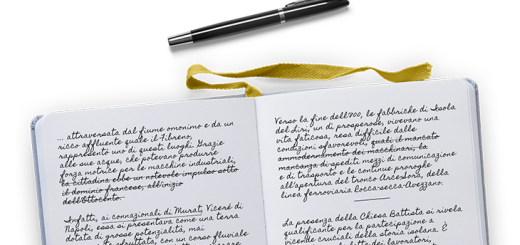 ... attraversata dal fiume omonimo e da un
ricco affluente quale il Fibreno,
rappresentò uno di questi luoghi. Grazie
alle sue acque, che potevano produrre
forza motrice per le macchine industriali,
la cittadina ebbe un notevole impulso sotto
il dominio francese, all'inizio
dell'Ottocento.
Infatti, ai connazionali di Murat, Viceré di
Napoli, essa si presentava come una terra
dotata di grosse potenzialità, mai
sfruttata, con un corso fluviale
Verso la fine dell'800, le fabbriche di Isola
del Liri, un dì prosperose, vivevano una
vita faticosa, resa difficile dalle
condizioni sfavorevoli, quali il mancato
ammodernamento dei macchinari, la
mancanza di spediti mezzi di comunicazione
e di trasporto e le continue proroghe
all'apertura del tronco Arce-Sora, della
linea ferroviaria Rocca-secca-Avezzano.
La presenza della Chiesa Battista si rivela
qualificante per la partecipazione a
vicende cruciali della storia isolana. È
dei lavoratori